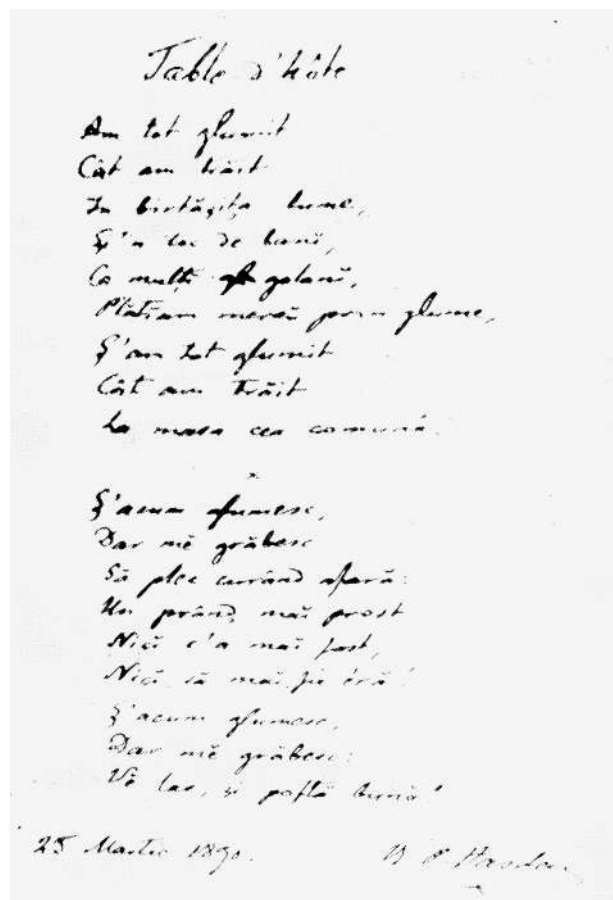 Table d'hôte
Am tot glumit
Cât am trăit
In birtășița lume,
Ș'n loc de banĭ,
Ca mulțĭ galanĭ,
Plătiam mereŭ prin glume,
Ș'am tot glumit
Cât am trăit
La masa cea comună.
Ș'acum glumesc,
Dar mĕ grăbesc
Să plec curând afară:
Un prând maĭ prost
Nicĭ c'a maĭ fost,
Nicĭ să maĭ fie éră!
Ș'acum glumesc,
Dar mĕ grăbesc:
Vĕ las, și poftă bună!
25 Martie 1890.
B P Hasdeu